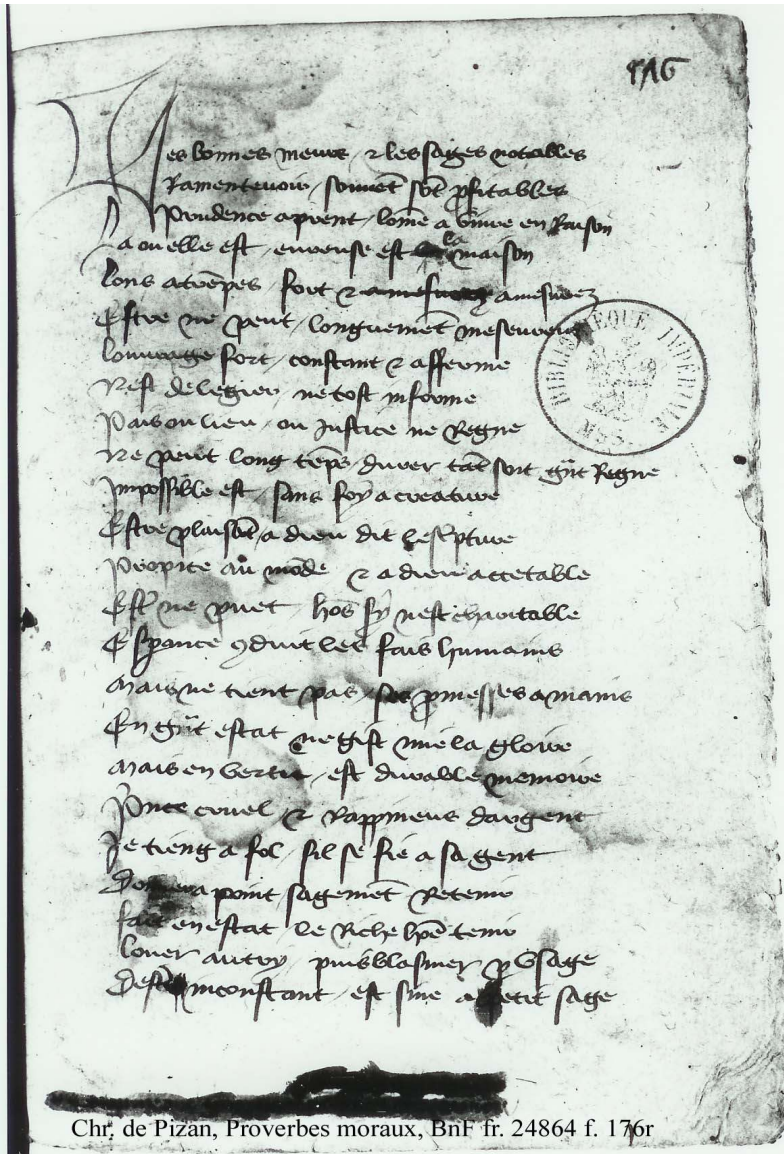 176
Les bonnes meurs / et les sages notables
Ramentevoir / souvēt sōt ꝓfitables
Prudence aprent / lōme a vivre en Raison
La ou elle est / eureuse est la maison
Lons atrēpes / fort et amesurez
Estre ne peut / longuemēt meseureux
Louvrage fort / constant et afferme
Nest de legier / ne tost informe
Pais ou lieu / ou Justice ne Regne
Ne peut long tēps / durer tāt soit grāt Regne
Impossible est / sans foy a creature
Estre plaisāt / a dieu dit lescⁱpture
Propice au mōde et a dieu accetable
Estr̄ ne puet hōs sy nest charitable
Esꝑance ꝯduit les fais humains
Mais ne tient pas / ses ꝓmesses a mains
En grāt estat ne gist mie la gloire
Mais en vertu / est durable memoire
Pⁱnce cruel et Rappineus dargent
Je tieng a fol / sil se fie a sa gent
point sagemēt Retenir
fait en estat le Riche hōe tenir
Louer autruy / puis blasmer ꝑ usage
Destre inconstant / est sine a petit sage
BIBLIOTHÈQUE IMPÉRIALE MSS
Chr. de Pizan, Proverbes moraux, BnF fr. 24864 f. 176r